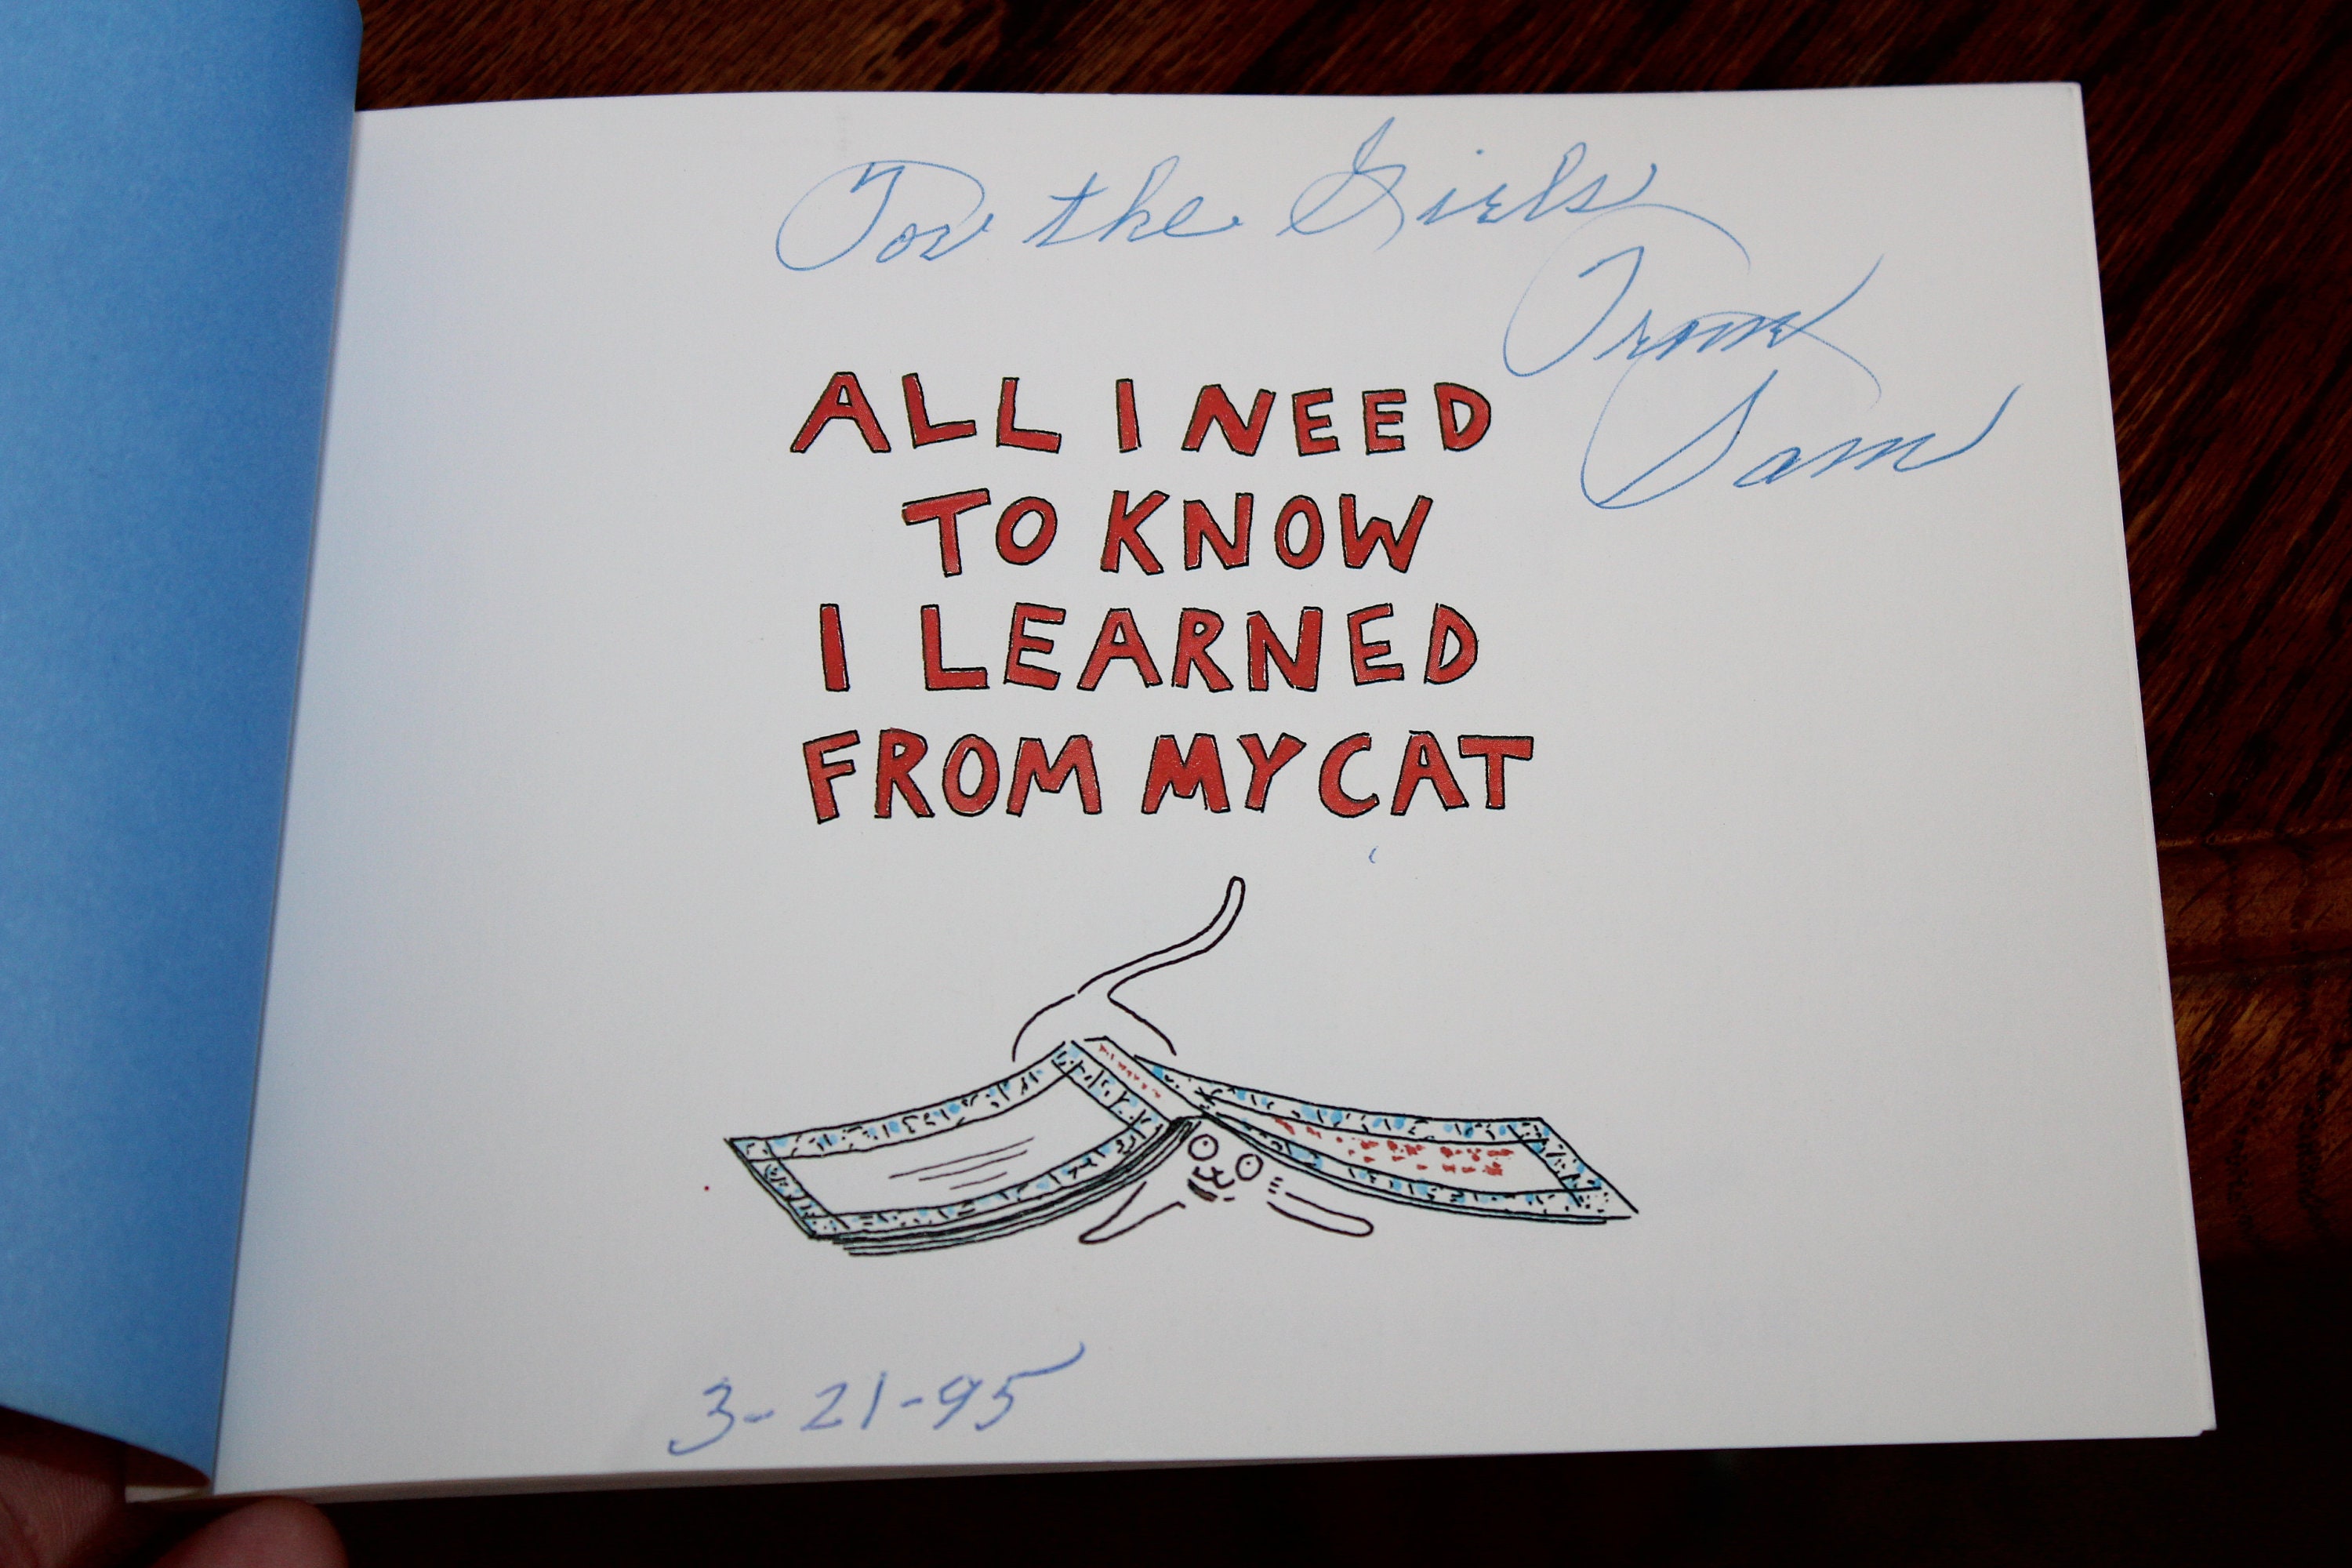 For the Girls
From
Sam
ALL I NEED
TO KNOW
I LEARNED
FROM MY CAT
3-21-95